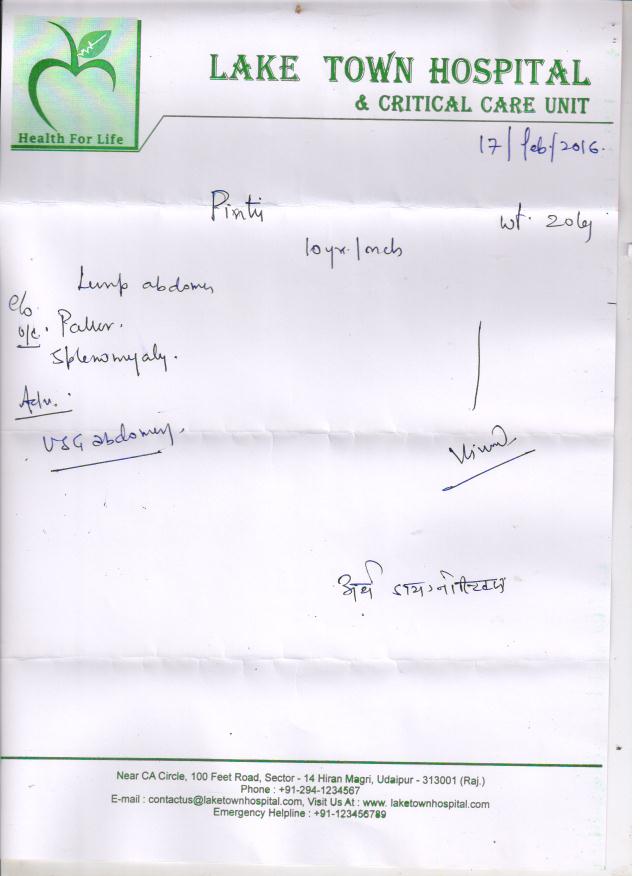 Health For Life
LAKE TOWN HOSPITAL
& CRITICAL CARE UNIT
17/feb/2016.
Pinti
wt. 20kg
10yr./
c/o Lump abdomen
o/e. Pallor.
Splenomegaly.
Adv.:
USG abdomen.
अर्थ डायग्नोस्टिक्स
Near CA Circle, 100 Feet Road, Sector - 14 Hiran Magri, Udaipur - 313001 (Raj.)
Phone : +91-294-1234567
E-mail : contactus@laketownhospital.com, Visit Us At : www. laketownhospital.com
Emergency Helpline : +91-123456789